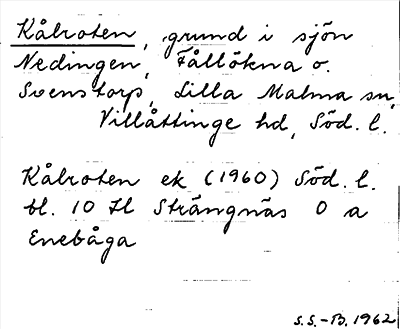 Kålroten, grund i sjön
Nedingen, Fållökna o.
Svenstorp, Lilla Malma sn,
Villåttinge hd, Söd. l.
Kålroten ek (1960) Söd. l.
bl. 10 H Strängnäs O a
Enebåga
S.S.-B. 1962